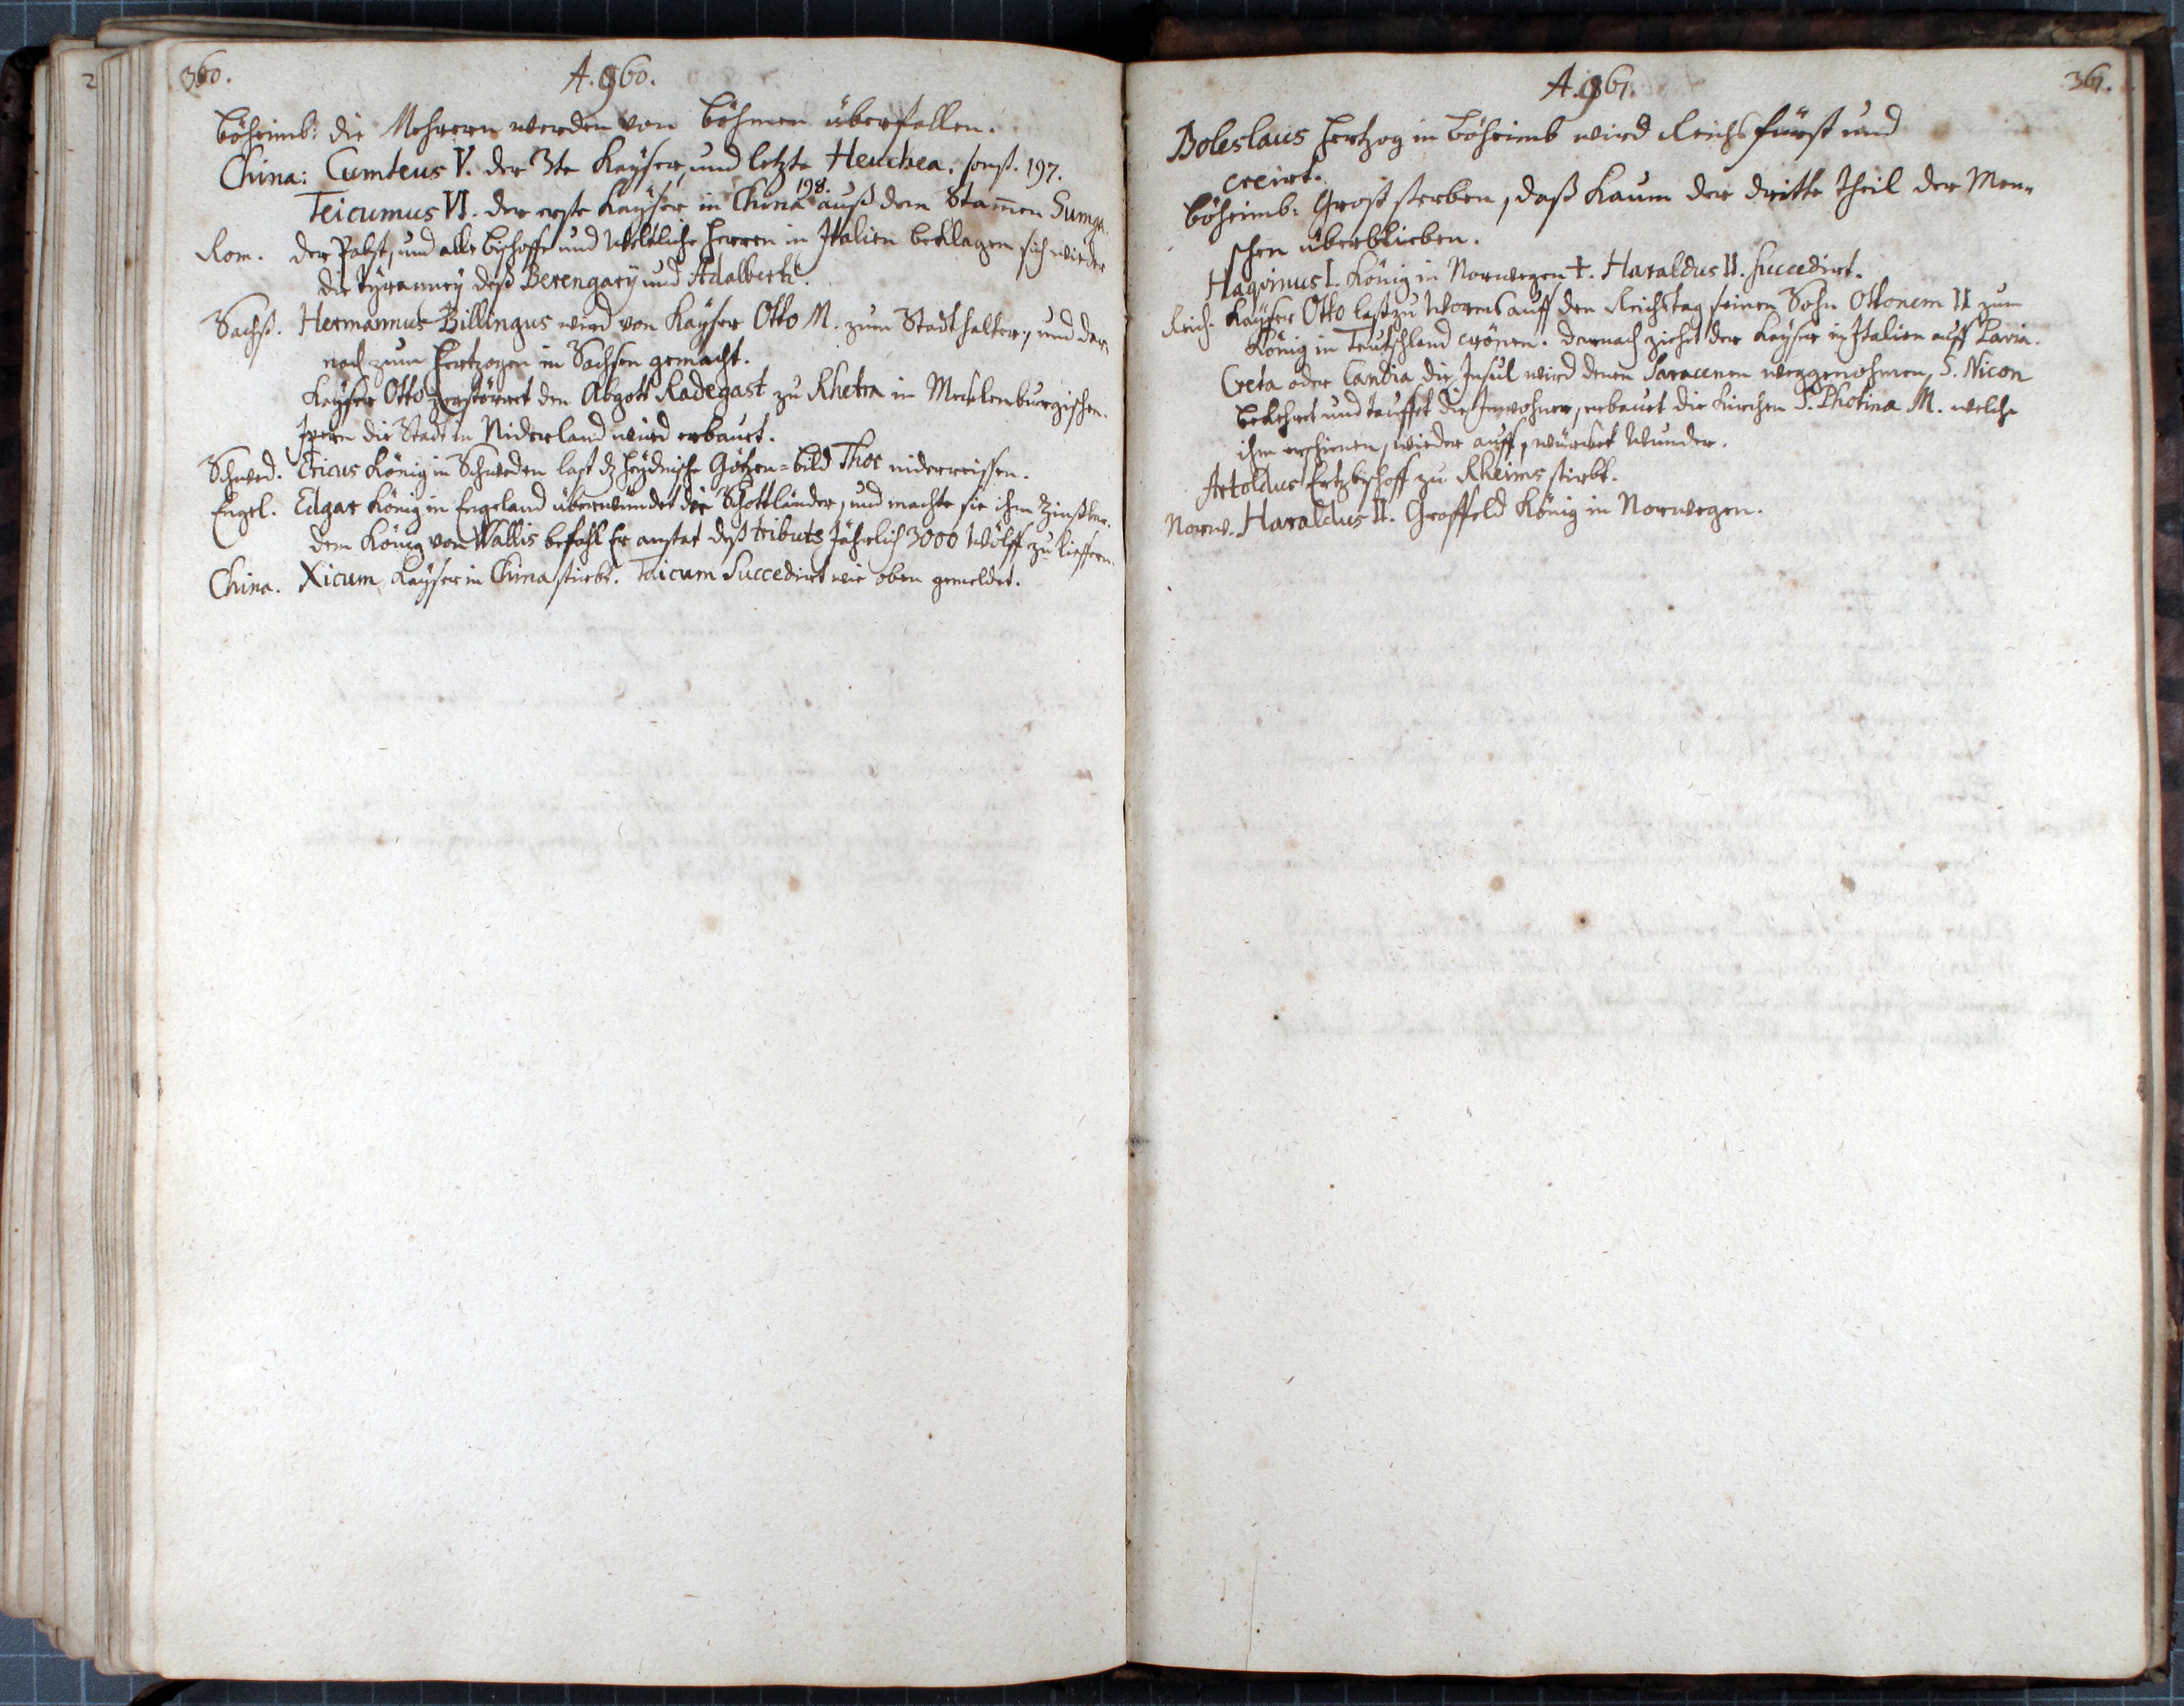 2
360.
A. 960.
Böheimb: die Mehrern werden von Böhmen überfallen.
China: Cumteus V. der 3te Kaÿser, und letzte Heuchea. sonst. 197.
198.
Teicumus VI. der erste Kaÿser in China auß dem Stam̄en Sumga.
Rom. der Pabst, und alle Bischoffe und Weltliche Herren in Italien beklagen sich wieder
die Tÿranneÿ deß Berengarÿ und Adalberti.
Sachß. Hermannus Billingus wird von Kaÿser Otto M. zum Stadthalter, und der-
nach zum Hertzogen in Sachsen gemacht.
Kaÿser Otto zerstörret den Abgott Radegast zu Rhetra in Meckenburgischen.
Ipern die Stadt in Niderland wird erbauet.
Schwed. Ericus König in Schweden last dz heÿdnische Götzen-bild Thor niderreissen.
Engel. Edgar König in Engeland überwündet die Schottländer, und machte sie ihm Zinßbar.
dem König von Wallis befahl Er anstat deß tributs Jährlich 3000 Wölff zu lieffern.
China. Xicum, Kaÿser in China stirbt. Taicum Succedirt wie oben gemeldet.
A. 961.
361.
Boleslaus Hertzog in Böheimb wird Reichs fürst und
creirt.
Böheimb: Groß sterben, daß kaum der dritte theil der Men-
schen überblieben.
Haqvinus I. König in Norwegen †. Haraldus II. succedirt.
Reich. Kaÿser Otto last zu Worms auff den Reichstag seinen Sohn Ottonem II zum
König in Teutschland crönen. darnach ziehet der Kaÿser in Italien auff Pavia.
Creta oder Candia die Insul wird denen Saracenen weggenohmen, S. Nicon
bekehret und tauffet die Inwohner, erbauet die Kirchen S. Photina M. welche
ihm erschienen, wieder auff, würcket Wunder.
Artoldus Ertzbischoff zu Rheims stirbt.
Norw. Haraldus II. Graffeld König in Norwegen.